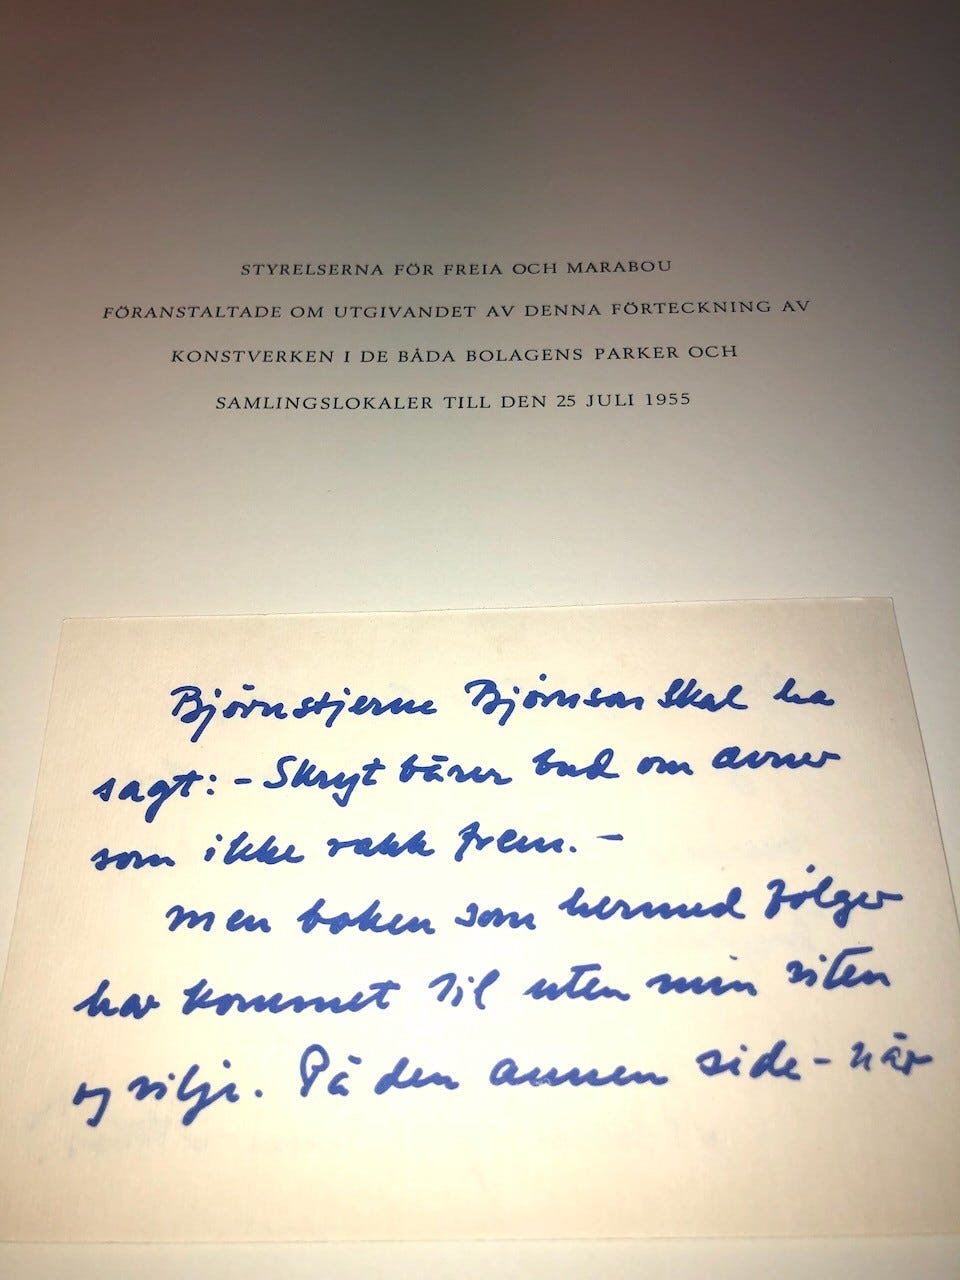 STYRELSERNA FÖR FREIA OCH MARABOU
FÖRANSTALTADE OM UTGIVANDET AV DENNA FÖRTECKNING AV
KONSTVERKEN I DE BÅDA BOLAGENS PARKER OCH
SAMLINGSLOKALER TILL DEN 25 JULI 1955
Björnstjerne Bjørnson skal ha
sagt: – Skryt bærer bud om evner
som ikke rakk frem. –
Men boken som hermed følger
har kommet til uten min viten
og vilje. På den annen side – når